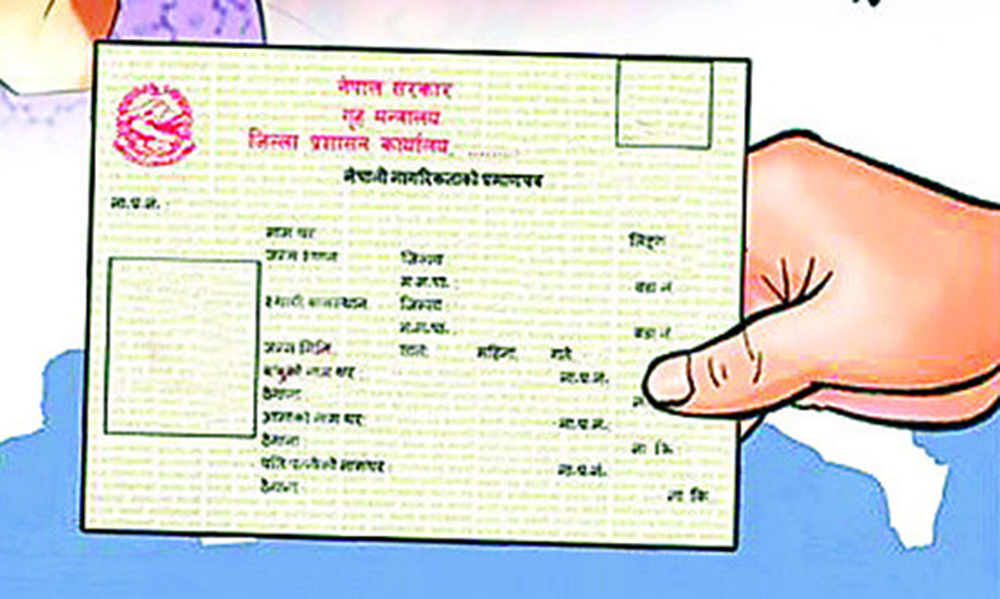 नेपाल सरकार
गृह मन्त्रालय
जिल्ला प्रशासन कार्यालय ..........
नेपाली नागरिकताको प्रमाणपत्र
ना.प्र.नं. :
नाम थर लिङ्ग
जन्म स्थान जिल्ला
गा.पा. वडा नं.
स्थायी वासस्थान जिल्ला
गा.पा. वडा नं.
जन्म मिति साल महिना गते
बाबुको नाम थर ना.प्र.नं.
ठेगाना
आमाको नाम थर ना.प्र.नं.
ठेगाना ना कि
पति/पत्नीको नामथर ना.प्र.नं.
ठेगाना ना कि